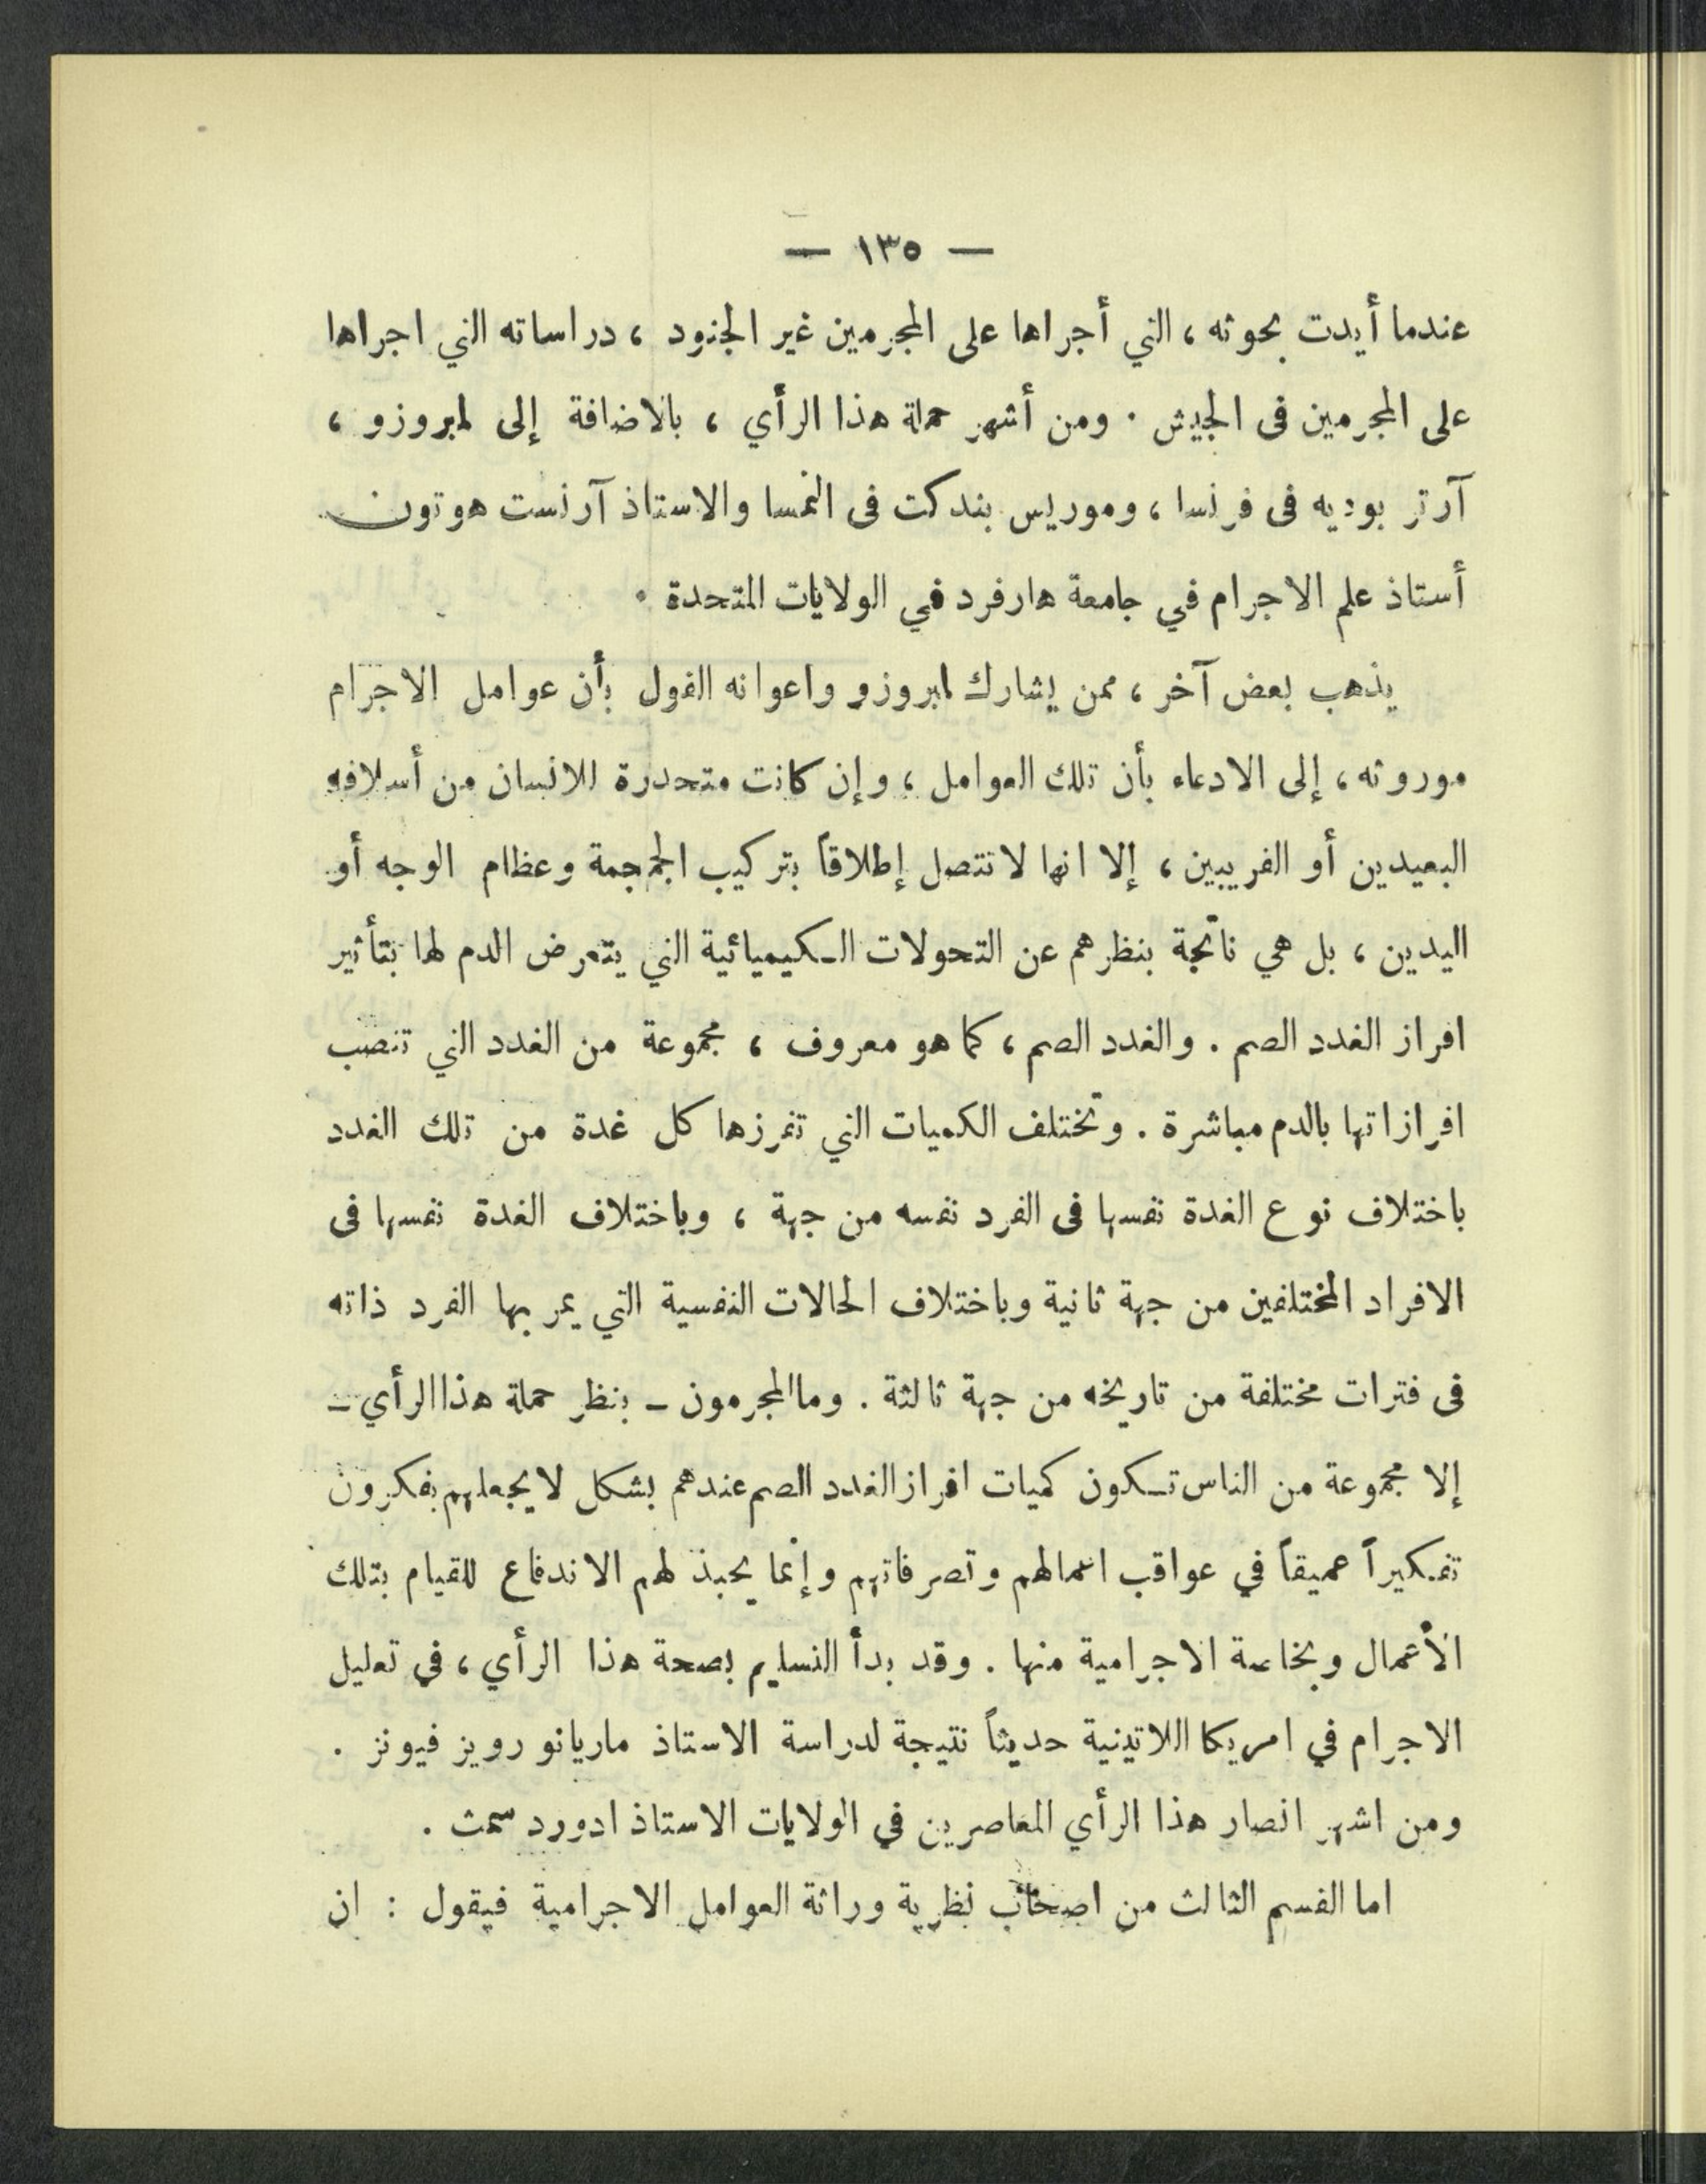 — ١٣٥ —
عندما أيدت بحوثه ، التي أجراها على المجرمين غير الجنود ، دراساته التي اجراها
على المجرمين فى الجيش . ومن أشهر حملة هذا الرأي ، بالاضافة إلى لمبروزو ،
آرتر بوديه فى فرنسا ، وموريس بندكت فى النمسا والاستاذ آرنست هوتون
أستاذ علم الاجرام في جامعة هارفرد في الولايات المتحدة .
يذهب بعض آخر ، ممن يشارك لمبروزو واعوانه القول بأن عوامل الاجرام
موروثه ، إلى الادعاء بأن تلك العوامل ، وإن كانت متحدرة للانسان من أسلافه
البعيدين أو القريبين ، إلا انها لا تتصل إطلاقاً بتركيب الجمجمة وعظام الوجه أو
اليدين ، بل هي ناتجة بنظرهم عن التحولات الكيميائية التي يتعرض الدم لها بتأثير
افراز الغدد الصم . والغدد الصم ، كما هو معروف ، مجموعة من الغدد التي تنصب
افرازاتها بالدم مباشرة . وتختلف الكميات التي تفرزها كل غدة من تلك الغدد
باختلاف نوع الغدة نفسها فى الفرد نفسه من جهة ، وباختلاف الغدة نفسها فى
الافراد المختلفين من جهة ثانية وباختلاف الحالات النفسية التي يمر بها الفرد ذاته
فى فترات مختلفة من تاريخه من جهة ثالثة . وما المجرمون - بنظر حملة هذا الرأي -
إلا مجموعة من الناس تكون كميات افراز الغدد الصم عندهم بشكل لا يجعلهم يفكرون
تفكيراً عميقاً في عواقب اعمالهم وتصرفاتهم وإنما يحبذ لهم الاندفاع للقيام بتلك
الأعمال وبخاصة الاجرامية منها . وقد بدأ التسليم بصحة هذا الرأي ، في تعليل
الاجرام في امريكا اللاتينية حديثاً نتيجة لدراسة الاستاذ ماريانو رويز فيونز .
ومن اشهر انصار هذا الرأي المعاصرين في الولايات الاستاذ ادورد سمث .
اما القسم الثالث من اصحاب نظرية وراثة العوامل الاجرامية فيقول : ان